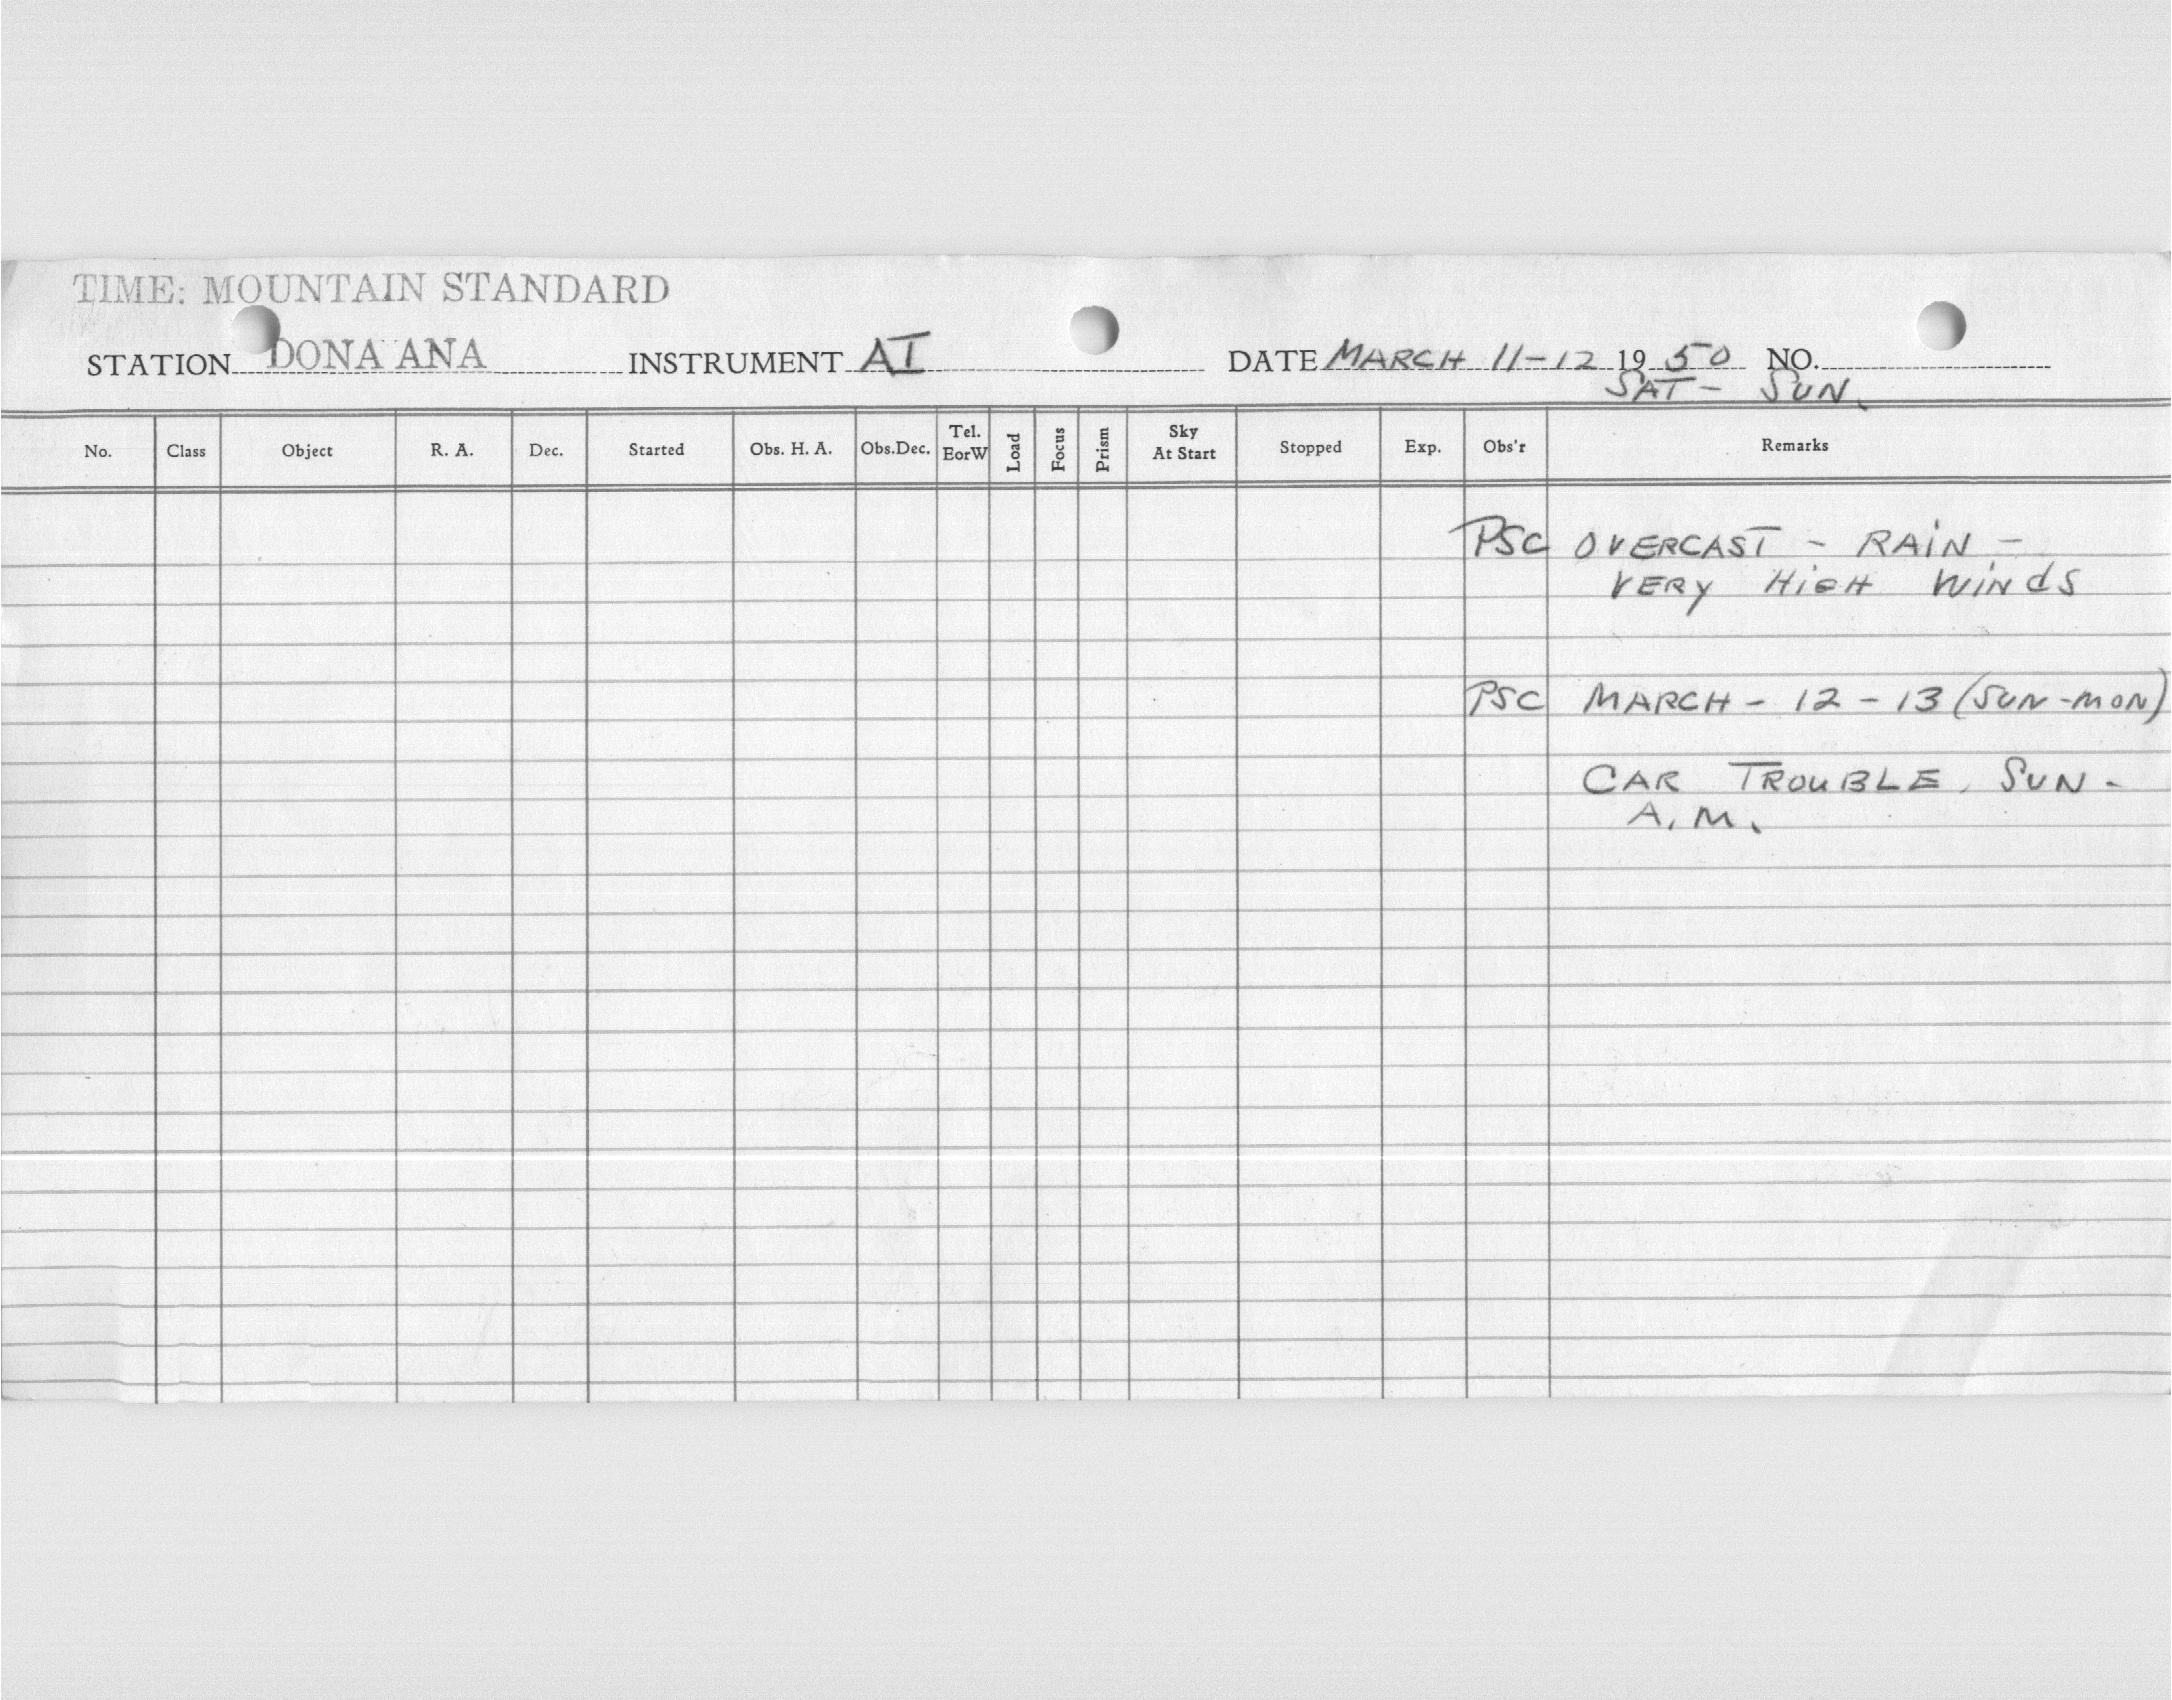 TIME: MOUNTAIN STANDARD
STATION DONA ANA INSTRUMENT AI DATE MARCH 11-12 19 50 NO.
SAT - SUN.
No. Class Object R. A. Dec. Started Obs. H. A. Obs.Dec. Tel. EorW Load Focus Prism Sky At Start Stopped Exp. Obs'r Remarks
PSC OVERCAST - RAIN -
VERY HIGH WINDS
PSC MARCH - 12 - 13 (SUN-MON)
CAR TROUBLE, SUN-
A.M.